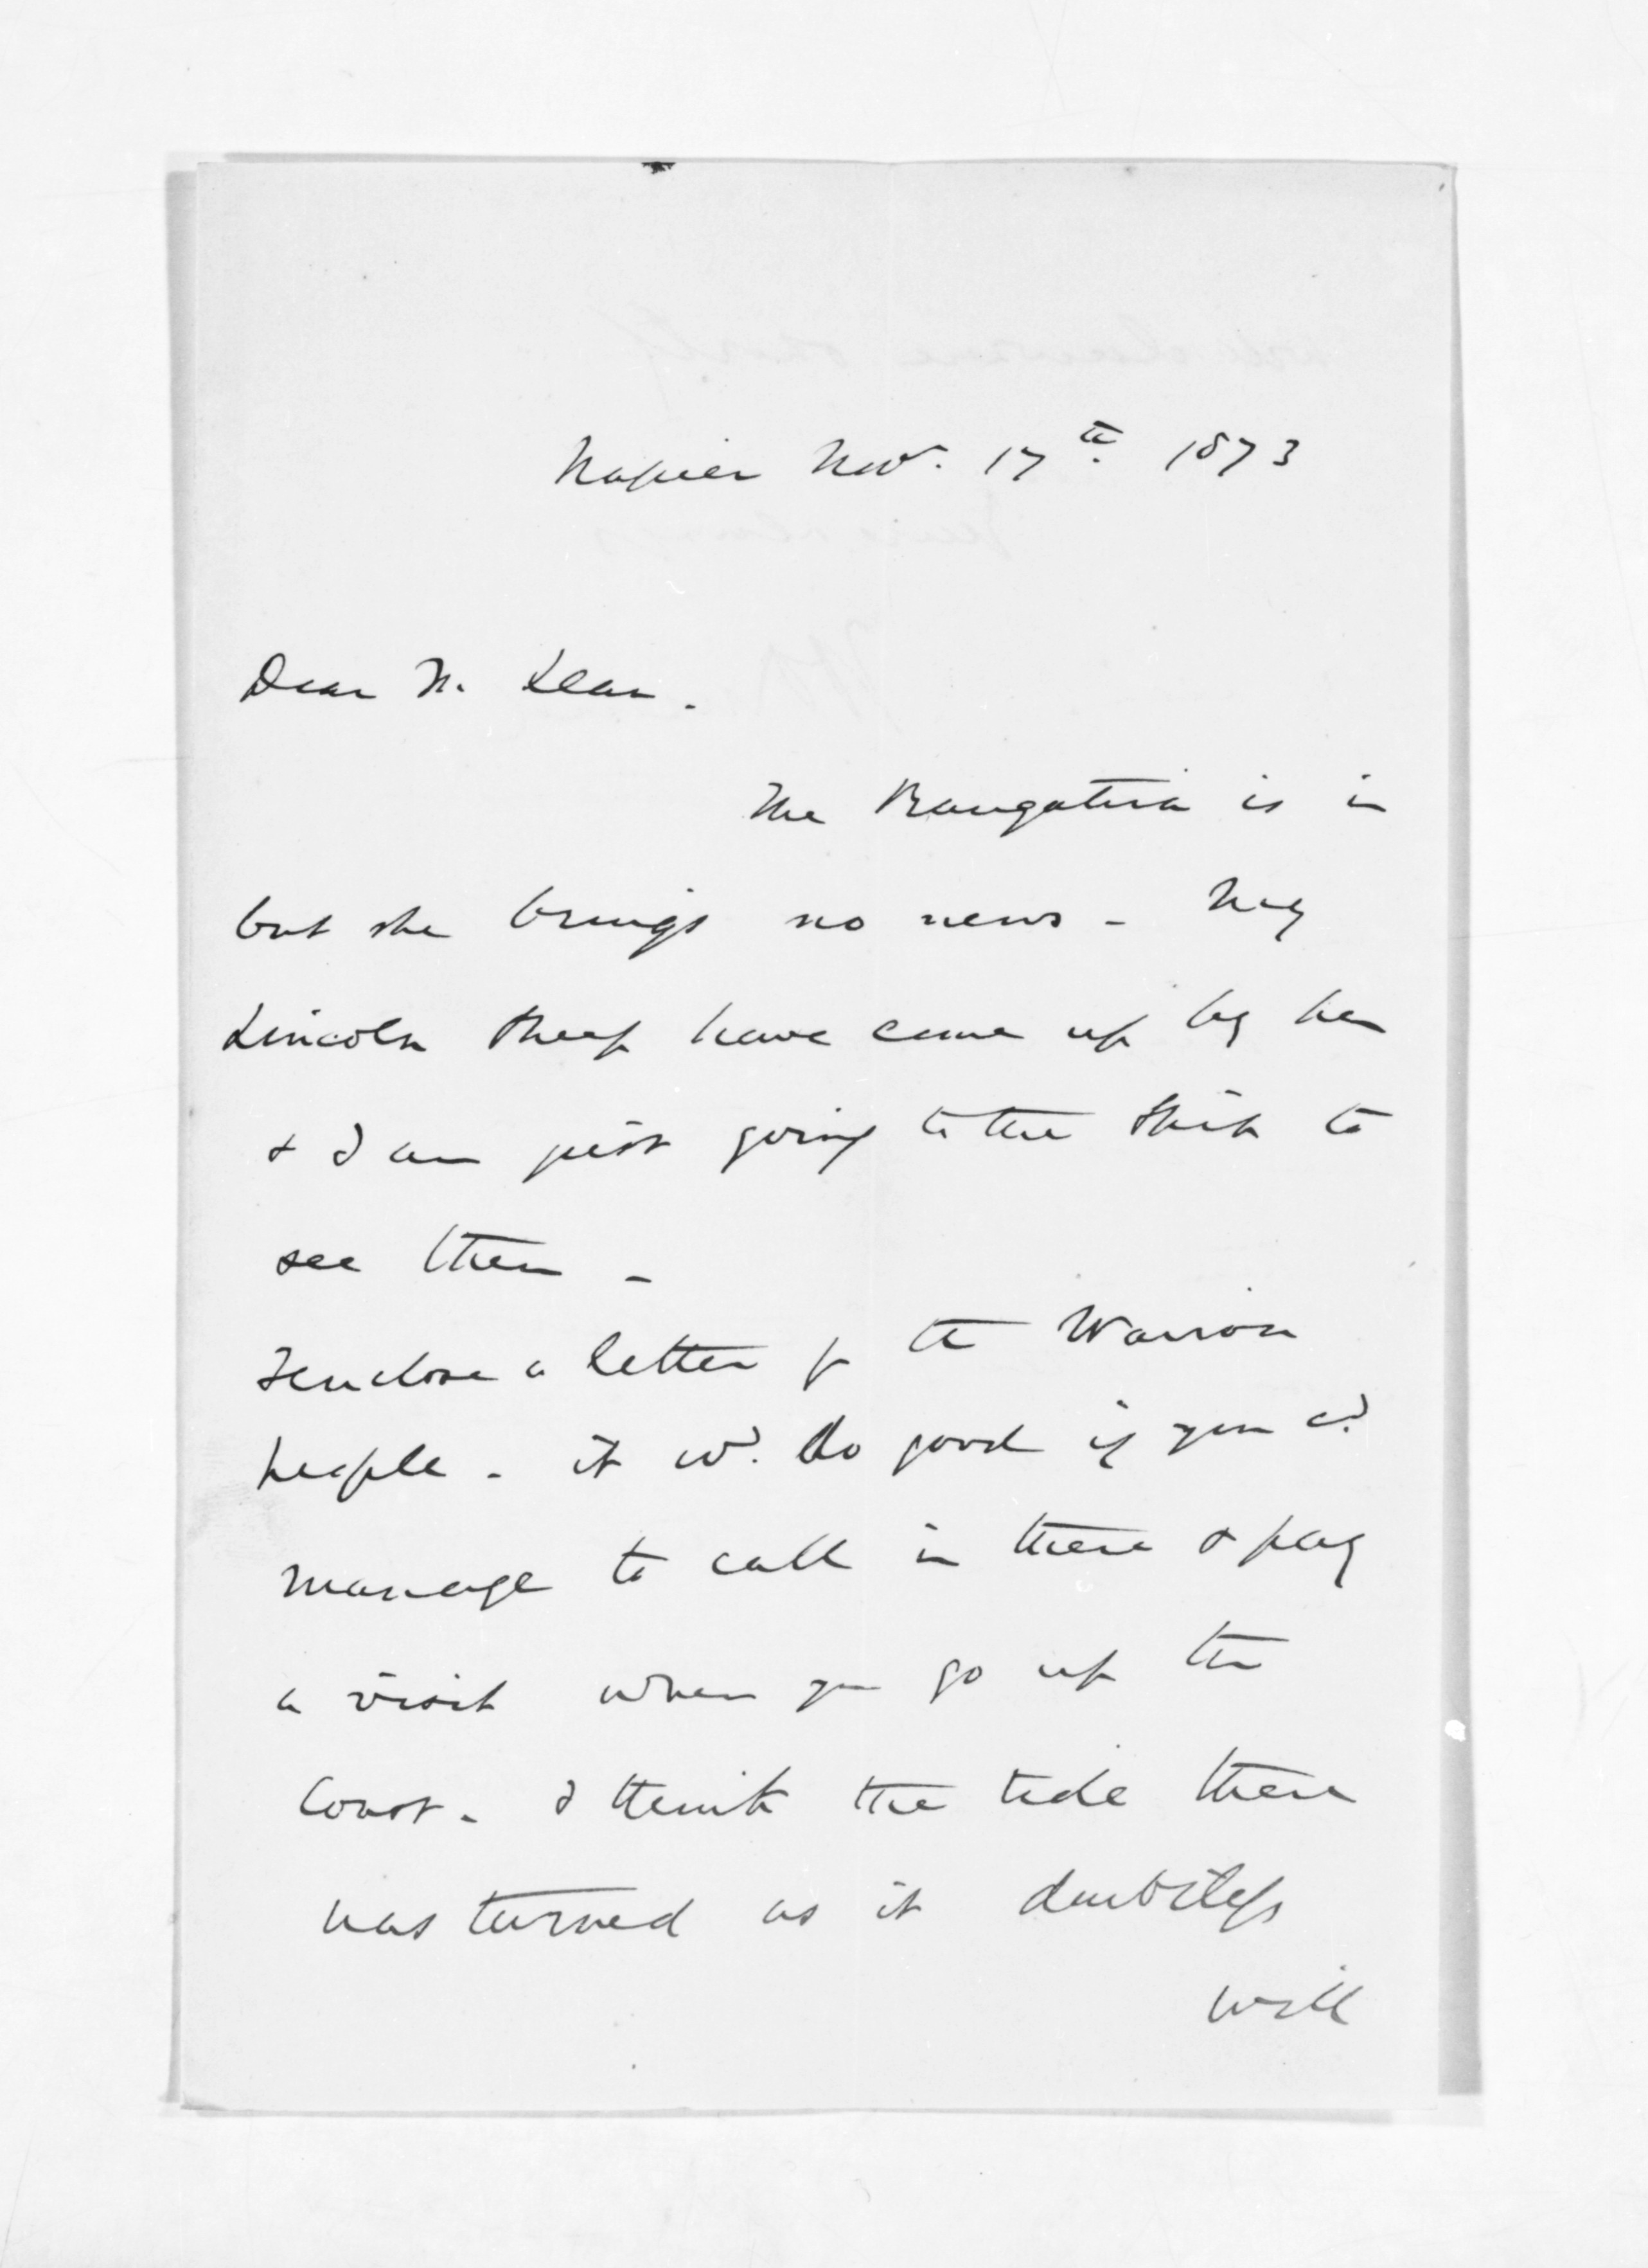 Napier Nov. 17th. 1873
Dear McLean.
The Rangatira is in
but she brings no news - My
Lincoln Sheep have come up by her
& I am just going to the Ship to
see them -
I enclose a letter fr the Wairoa
people - it wd. do good if you cd.
manage to call in there & pay
a visit when you go up the
Coast - I think the tide there
has turned as it doubtless
will